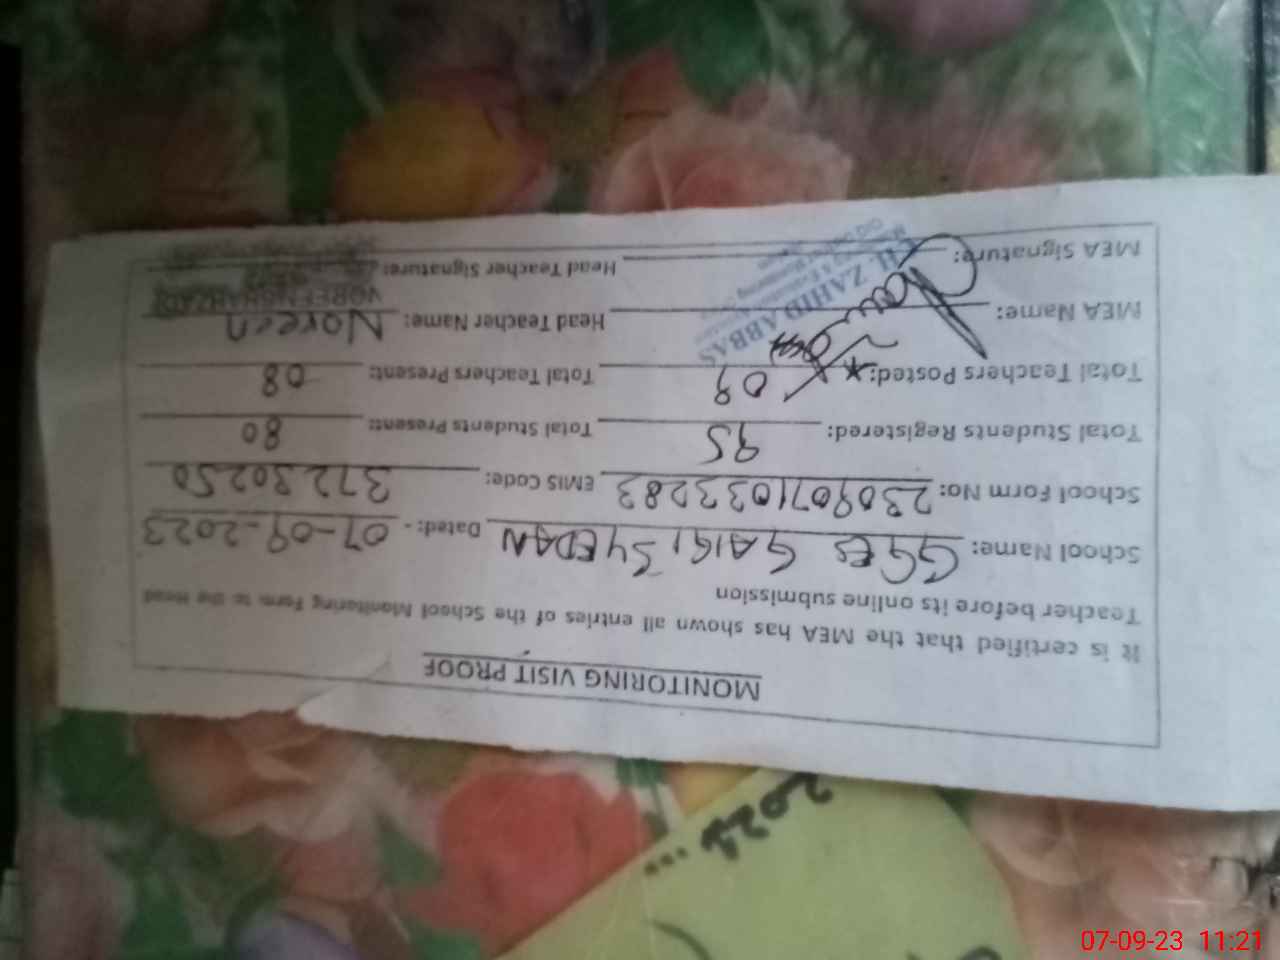 MONITORING VISIT PROOF
It is certified that the MEA has shown all entries of the School Monitoring Form to the Head
Teacher before its online submission
School Name: GGES GAIGI SYEDAN Dated: - 07-09-2023
School Form No: 2309071033283 EMIS Code: 37230250
Total Students Registered: 95 Total Students Present: 80
Total Teachers Posted: 09 Total Teachers Present: 08
MEA Name: Head Teacher Name: Noreen
MEA Signature: Head Teacher Signature:
CH. ZAHID ABBAS
2023
07-09-23 11:21